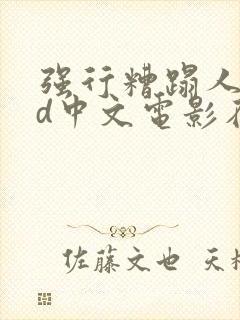 强行糟蹋人
d中文电影在
佐藤文也 天机